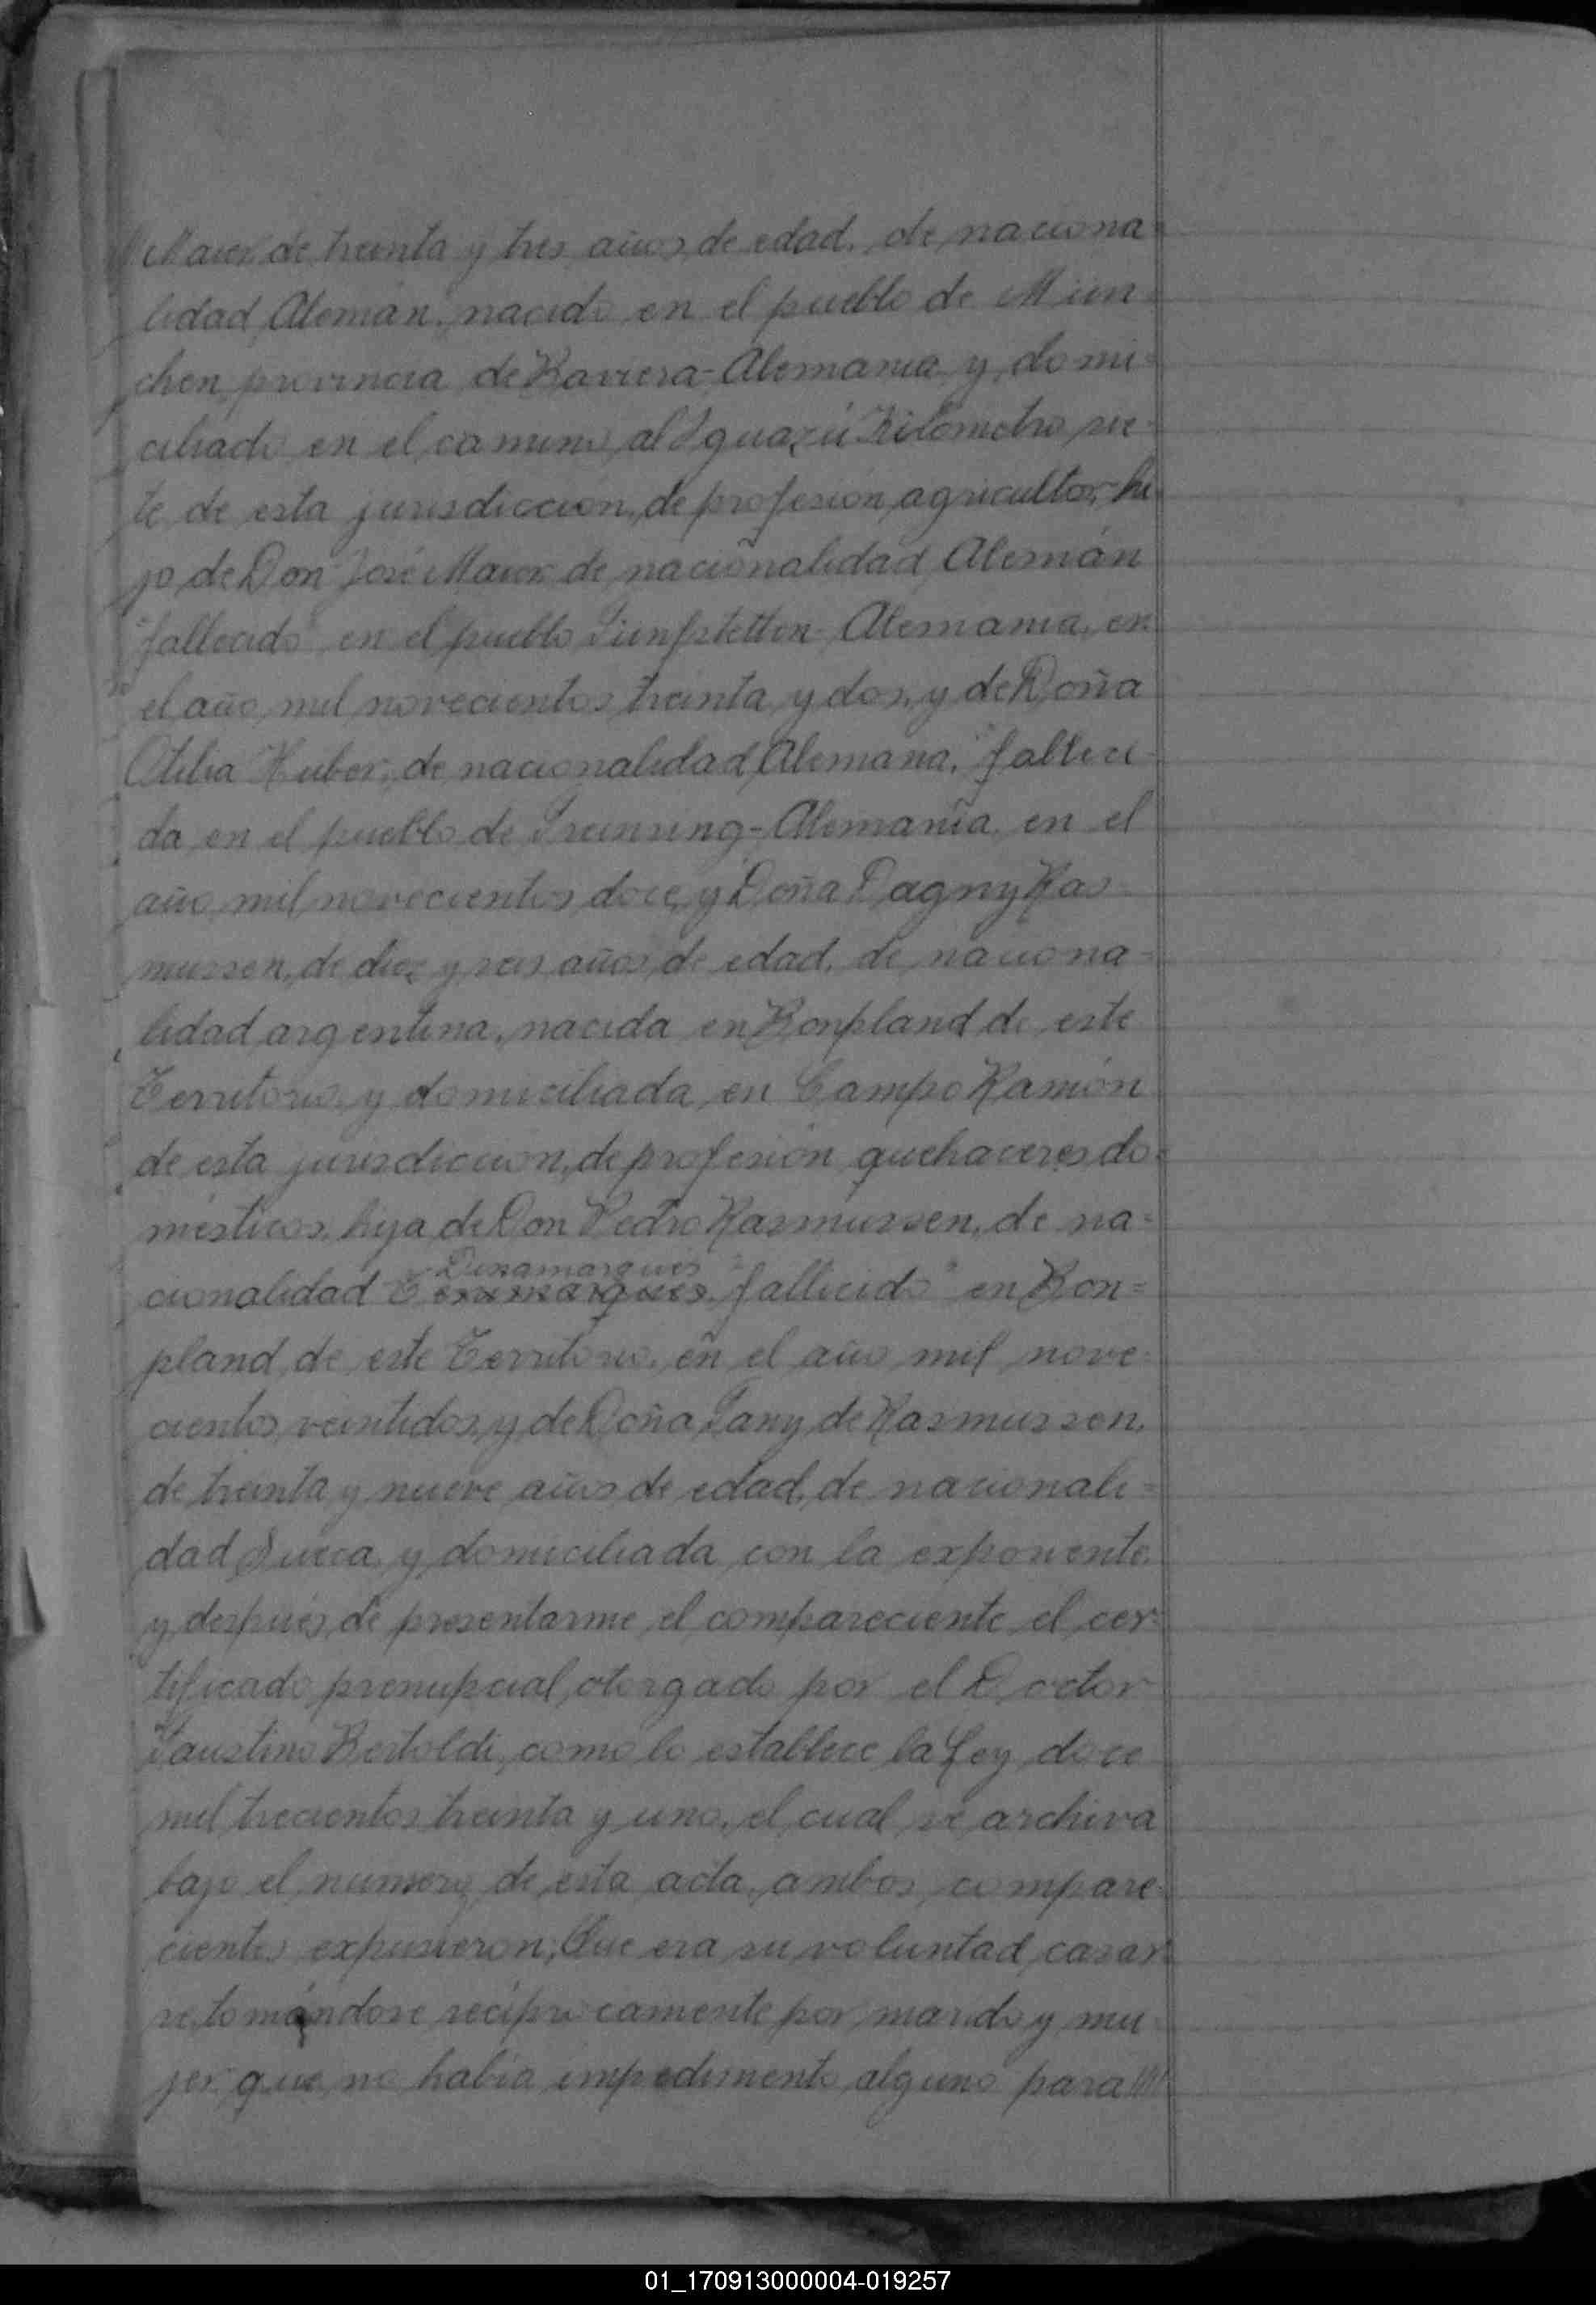 Maier de treinta y tres años de edad, de naciona=
lidad Alemán, nacido en el pueblo de Mün=
chen provincia de Baviera-Alemania y domi=
ciliado en el camino al Iguazú Kilómetro sie=
te de esta jurisdicción, de profesión agricultor, hi=
jo de Don José Maier de nacionalidad Alemán
"fallecido" en el pueblo Alemania, en
el año mil novecientos treinta y dos, y de Doña
Otilia Huber, de nacionalidad Alemana, "falleci=
da en el pueblo de Alemania en el
año mil novecientos doce y Doña Dagny Ras=
mussen, de diez y seis años de edad, de naciona=
lidad argentina, nacida en Bonpland de este
Territorio y domiciliada en Campo Ramón
de esta jurisdicción, de profesión quehaceres do=
mésticos, hija de Don Pedro Rasmussen, de na=
Dinamarqués
cionalidad "fallecido" en Bon=
pland de este Territorio, en el año mil nove=
cientos veintidos, y de Doña Fany de Rasmussen,
de treinta y nueve años de edad, de nacionali=
dad Sueca y domiciliada con la exponente,
y después de presentarme el compareciente el cer=
tificado prenupcial, otorgado por el Doctor
Faustino Bertoldi, como lo establece la Ley doce
mil trecientos treinta y uno, el cual se archiva
bajo el numero de esta acta, ambos compare=
cientes expusieron; Que era su voluntad casar=
se, tomándose recíprocamente por marido y mu=
jer, que no había impedimento alguno para///
01_170913000004-019257